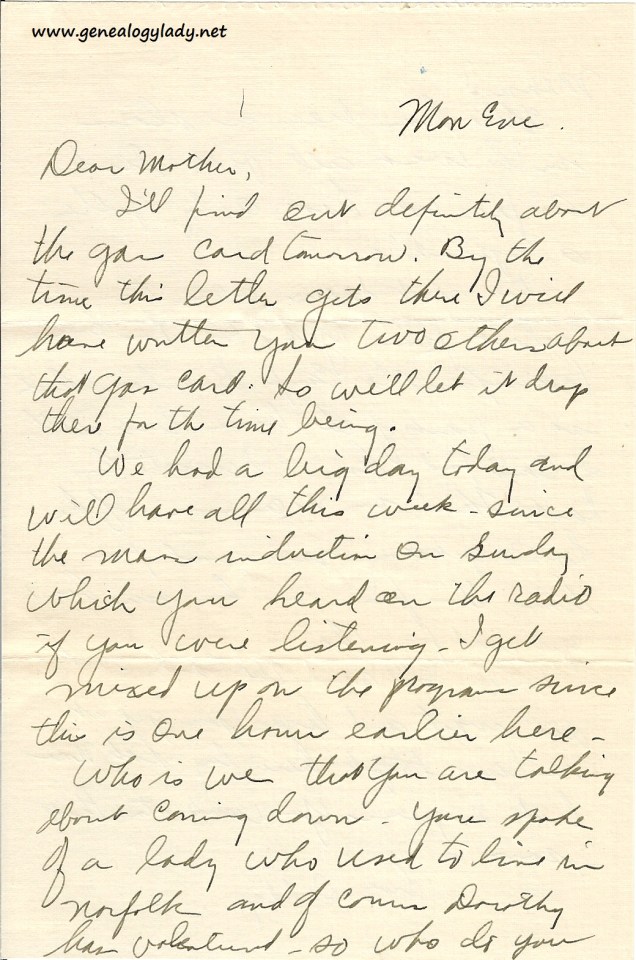 www.genealogylady.net
Mon Eve.
Dear Mother,
I'll find out definitely about
the gas card tomorrow. By the
time this letter gets there I will
have written you two others about
that gas card. So we'll let it drop
there for the time being.
We had a big day today and
will have all this week - since
the mass induction on Sunday
which you heard on the radio
if you were listening - I get
mixed up on the programs since
this is one hour earlier here -
Who is we that you are talking
about coming down - You spoke
of a lady who used to live in
Norfolk and of course Dorothy
has volunteered - so who do you